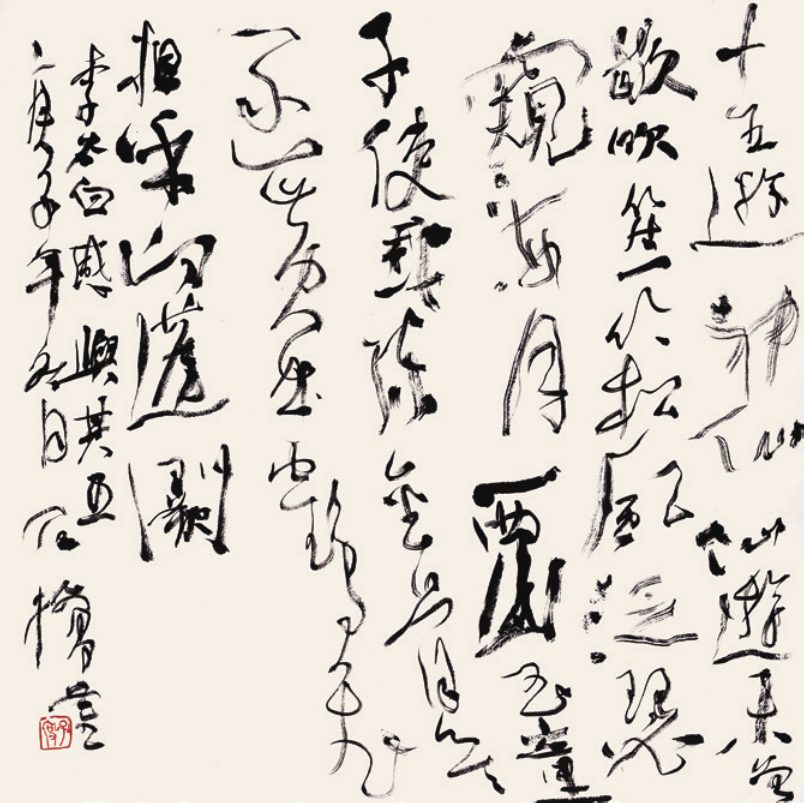 十五遊神仙仙遊未曾
歇吹笙吟松風泛瑟
窺海月西山玉童
子使我鍊金骨欲
逐黃鶴飛
相呼向蓬闕
李太白感興其五
庚子年月石橋